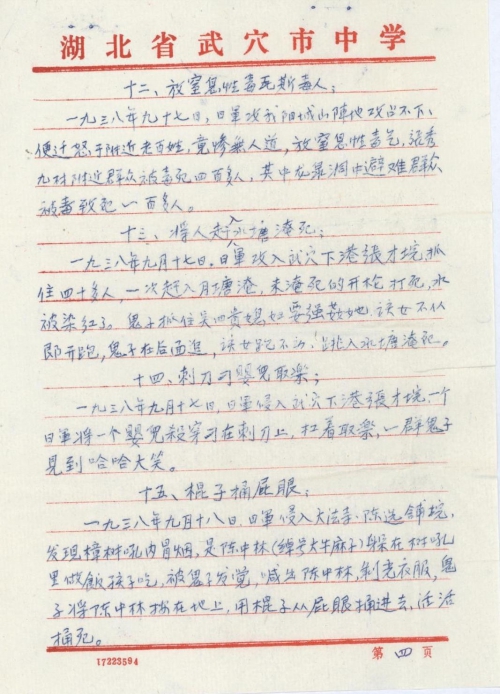 湖北省武穴市中学
十二、放窒息性毒瓦斯毒人；
一九三八年九十七日，日軍攻我阳城山陣地攻占不下、
便迁怒于附近老百姓，竟惨無人道，放窒息性毒气，
九村附近群众被毒死四百多人，其中龙湿洞中避难群众
被毒致死一百多人。
十三、将人赶入水塘淹死；
一九三八年九月十七日，日軍攻入武穴下港張才垸，抓
住四十多人，一次赶入月塘淹，未淹死的开枪打死，水
被染红了。鬼子抓住吴四贵媳妇要强姦她，该女不从
即开跑，鬼子在后面追，该女跑不动，跳入水塘淹死。
十四、刺刀刁嬰兒取樂；
一九三八年九月十七日，日軍侵入武穴下港張才垸一个
日軍将一个嬰兒殺穿刁在刺刀上，扛着取樂，一群鬼子
見到哈哈大笑。
十五、棍子捅屁眼；
一九三八年九月十八日，日軍侵入大法寺·陈选铺垸，
发现樟树吼内冒烟，是陈中林(绰号大牛麻子)躲在树吼
里做飯孩子吃，被鬼子发覚，喊出陈中林，剥老衣服，鬼
子将陈中林按在地上，用棍子从屁眼捅进去，活活
捅死。
17223594
第四页